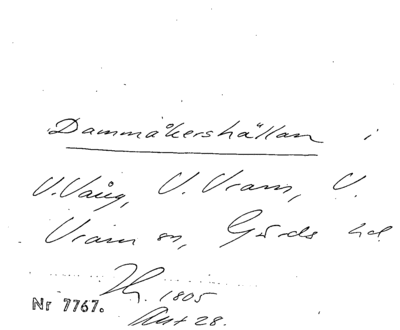 Dammåkershällan i
V. Vång, V. Vram, V.
Vram sn, Gärds hd
1805
Nr 7767.
28.